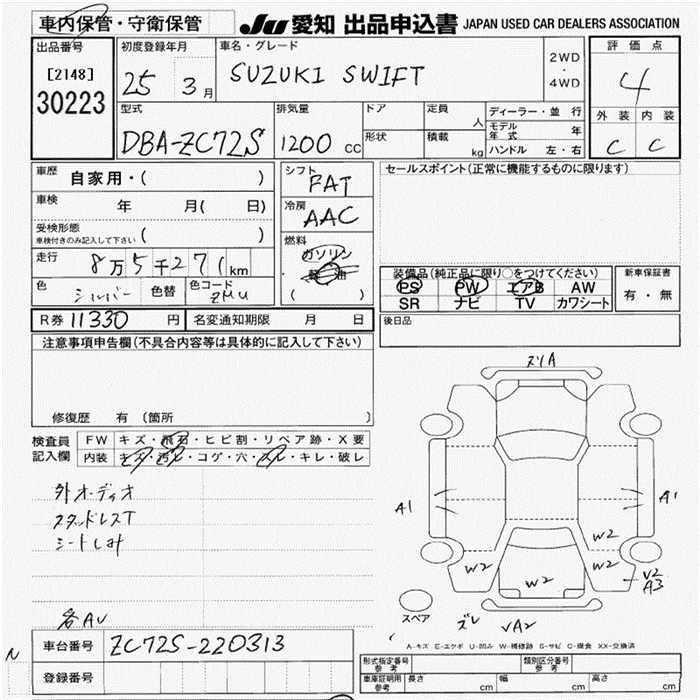 車内保管・守衛保管
JU 愛知 出品申込書 JAPAN USED CAR DEALERS ASSOCIATION
出品番号
[2148]
30223
初度登録年月
25 3月
車名・グレード
SUZUKI SWIFT
2WD
・
4WD
評価点
4
外装 内装
C C
型式
DBA-ZC72S
排気量
1200 CC
ドア
形状
定員 人
積載 kg
ディーラー・並行
モデル年式 年
ハンドル 左・右
車歴 自家用・( )
車検 年 月( 日)
受検形態
車検付きのみ記入して下さい ( )
走行 8万5千271km
色 シルバー 色替 色コード ZMU
シフト
FAT
冷房
AAC
燃料
ガソリン
軽油
( )
セールスポイント(正常に機能するものに限ります)
装備品(純正品に限り○をつけてください)
PS PW エアB AW
SR ナビ TV カワシート
新車保証書
有・無
R券 11330 円 名変通知期限 月 日
後日品
注意事項申告欄(不具合内容等は具体的に記入して下さい)
修復歴 有 (箇所 )
検査員
記入欄
FW キズ・飛石・ヒビ割・リペア跡・X要
内装 キズ・汚レ・コゲ・穴・スレ・キレ・破レ
外オーディオ
スタッドレスT
シートしみ
各AU
ズリA
A1
A1
W2
W2
W2
W2
V2
A3
スペア
ズレ
VA2
A-キズ E-エクボ U-凹み W-補修跡 S-サビ C-腐食 XX-交換済
車台番号 ZC72S-220313
N
登録番号
形式指定番号
参考
類別区分番号
参考
車庫証明用
参考
長さ cm 幅 cm 高さ cm